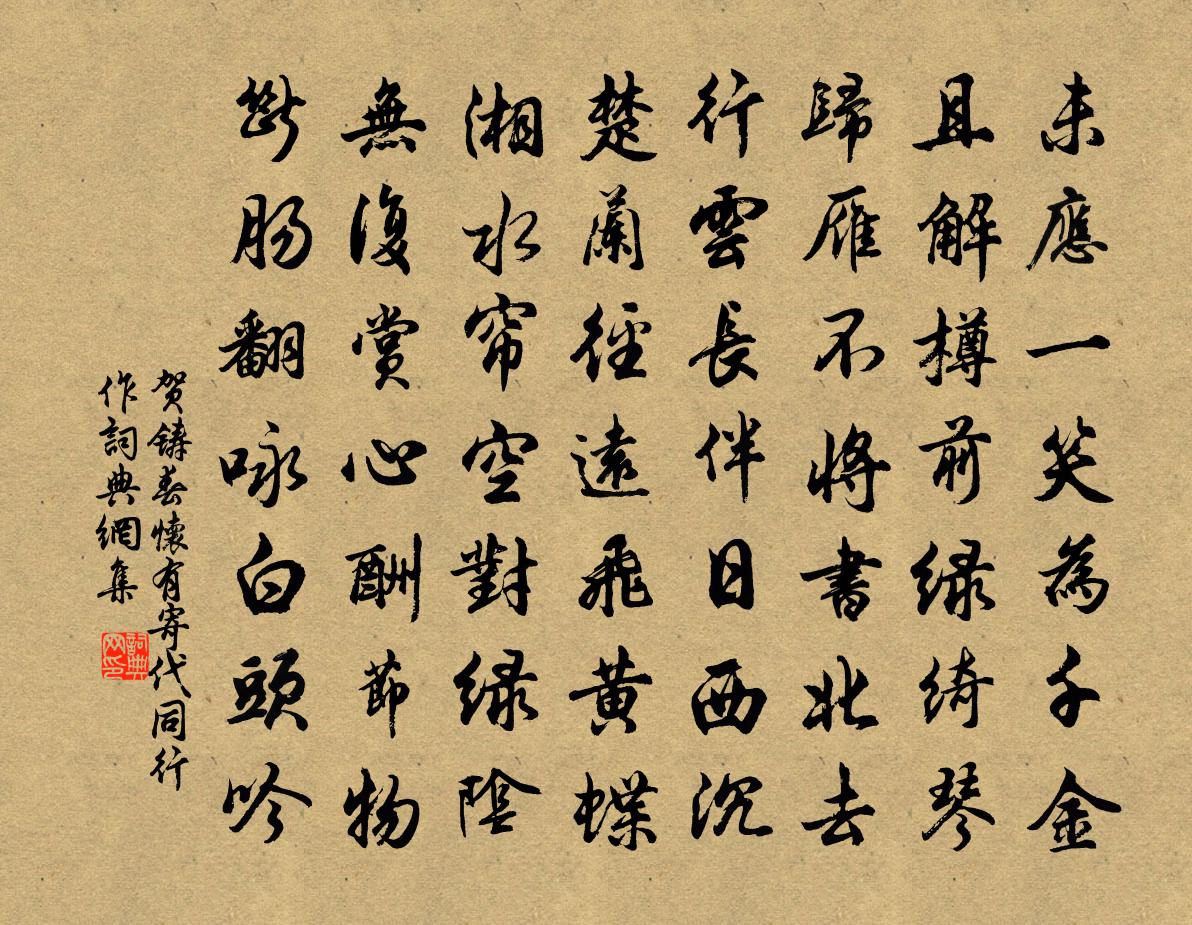 未應一笑為千金
且解樽前緑綺琴
歸雁不將書北去
行雲長伴日西沉
楚蘭徑遠飛黃蝶
湘水帘空對緑陰
無復賞心酬節物
斷腸翻咏白頭吟
贺鑄春懷有寄代同行
作詞典網集
詞典网印